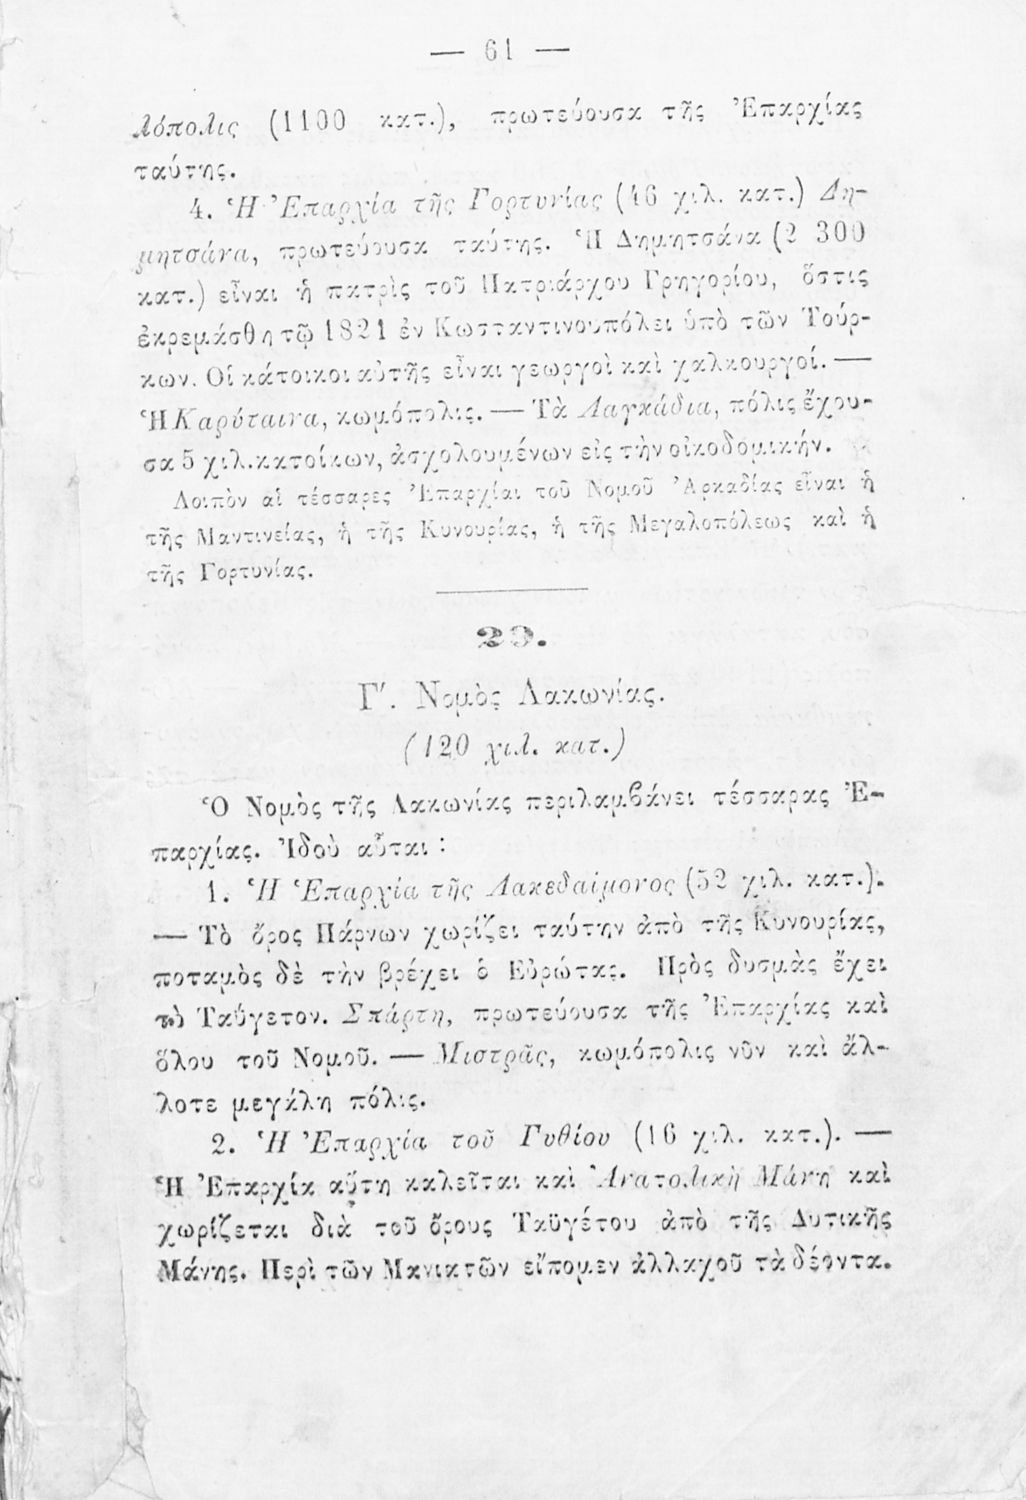 — 61 —
λόπολις (1100 κατ.), πρωτεύουσα τῆς Ἐπαρχίας
ταύτης.
4. Ἡ Ἐπαρχία τῆς Γορτυνίας (46 χιλ. κατ.) Δη-
μητσάνα, πρωτεύουσα ταύτης. Ἡ Δημητσάνα (2 300
κατ.) εἶναι ἡ πατρὶς τοῦ Πατριάρχου Γρηγορίου, ὅστις
ἐκρεμάσθη τῷ 1821 ἐν Κωσταντινουπόλει ὑπὸ τῶν Τούρ-
κων. Οἱ κάτοικοι αὐτῆς εἶναι γεωργοὶ καὶ χαλκουργοί. —
Ἡ Καρύταινα, κωμόπολις. — Τὰ Λαγκάδια, πόλις ἔχου-
σα 5 χιλ. κατοίκων, ἀσχολουμένων εἰς τὴν οἰκοδομικήν.
Λοιπὸν αἱ τέσσαρες Ἐπαρχίαι τοῦ Νομοῦ Ἀρκαδίας εἶναι ἡ
τῆς Μαντινείας, ἡ τῆς Κυνουρίας, ἡ τῆς Μεγαλοπόλεως καὶ ἡ
τῆς Γορτυνίας.
29.
Γ′. Νομὸς Λακωνίας.
(120 χιλ. κατ.)
Ὁ Νομὸς τῆς Λακωνίας περιλαμβάνει τέσσαρας Ἐ-
παρχίας. Ἰδοὺ αὗται :
1. Ἡ Ἐπαρχία τῆς Λακεδαίμονος (52 χιλ. κατ.).
— Τὸ ὄρος Πάρνων χωρίζει ταύτην ἀπὸ τῆς Κυνουρίας,
ποταμὸς δὲ τὴν βρέχει ὁ Εὐρώτας. Πρὸς δυσμὰς ἔχει
τὸ Ταΰγετον. Σπάρτη, πρωτεύουσα τῆς Ἐπαρχίας καὶ
ὅλου τοῦ Νομοῦ. — Μιστρᾶς, κωμόπολις νῦν καὶ ἄλ-
λοτε μεγάλη πόλις.
2. Ἡ Ἐπαρχία τοῦ Γυθίου (16 χιλ. κατ.). —
Ἡ Ἐπαρχία αὕτη καλεῖται καὶ Ἀνατολικὴ Μάνη καὶ
χωρίζεται διὰ τοῦ ὄρους Ταϋγέτου ἀπὸ τῆς Δυτικῆς
Μάνης. Περὶ τῶν Μανιατῶν εἴπομεν ἀλλαχοῦ τὰ δέοντα.